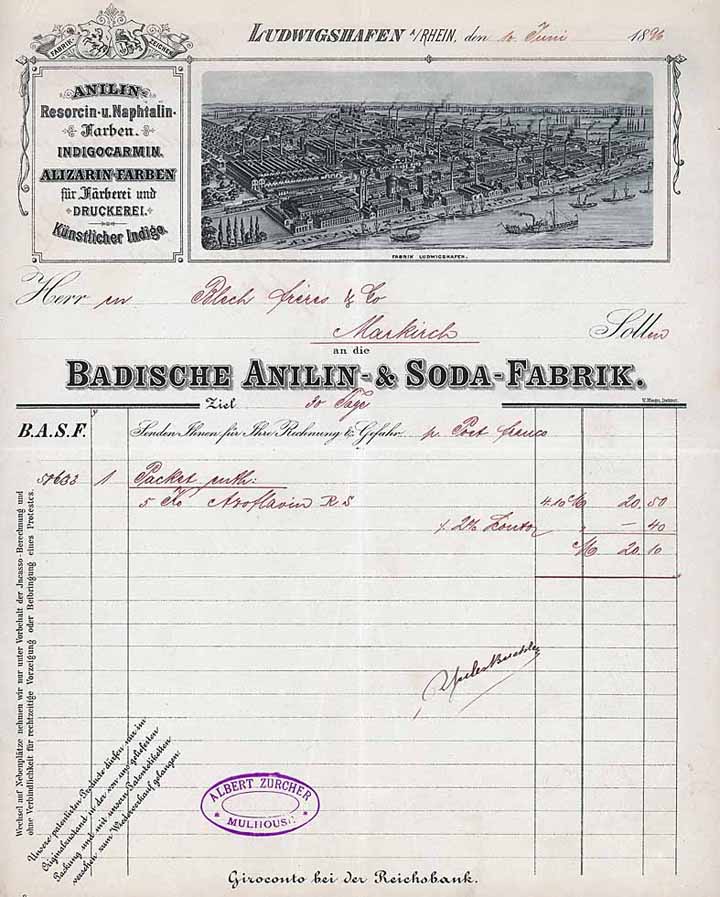 FABRIK ZEICHEN
LUDWIGSHAFEN A/RHEIN, den 10. Juni 1896
ANILIN-
Resorcin-u. Naphtalin-
Farben.
INDIGOCARMIN.
ALIZARIN-FARBEN
für Färberei und
DRUCKEREI.
Künstlicher Indigo.
FABRIK LUDWIGSHAFEN.
Herren Blech frères & Co
Markirch Sollen
an die
BADISCHE ANILIN- & SODA-FABRIK.
Ziel 30 Tage
B.A.S.F. Senden Ihnen für Ihre Rechnung & Gefahr p. Post franco
1 Packet enth:
5 Ko Azoflavin R.S 4.10 M 20.50
% 2% Sconto " — 40
M 20.10
Jules Buechler
Wechsel auf Nebenplätze nehmen wir nur unter Vorbehalt der Incasso-Berechnung und
ohne Verbindlichkeit für rechtzeitige Vorzeigung oder Beibringung eines Protestes.
Unsere patentirten Producte dürfen nur im
Originalzustand in der von uns gelieferten
Packung und mit unsern Patentetiketten
versehen zum Wiederverkauf gelangen.
ALBERT ZURCHER
* MULHOUSE *
Giroconto bei der Reichsbank.